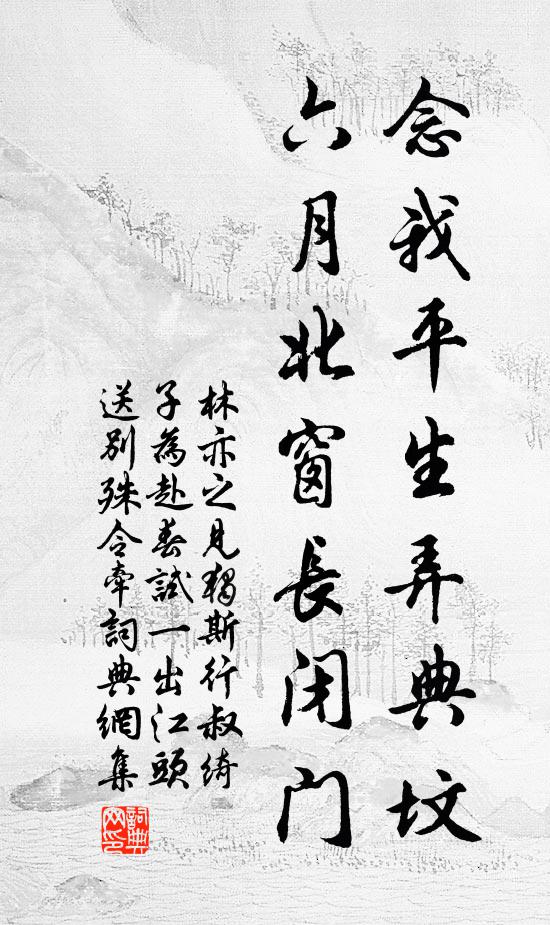 念我平生弄典坟
六月北窗長闭门
林亦之见獨斯行叔绮
子為赴春試一出江頭
送别殊令牽詞典網集
詞典網印